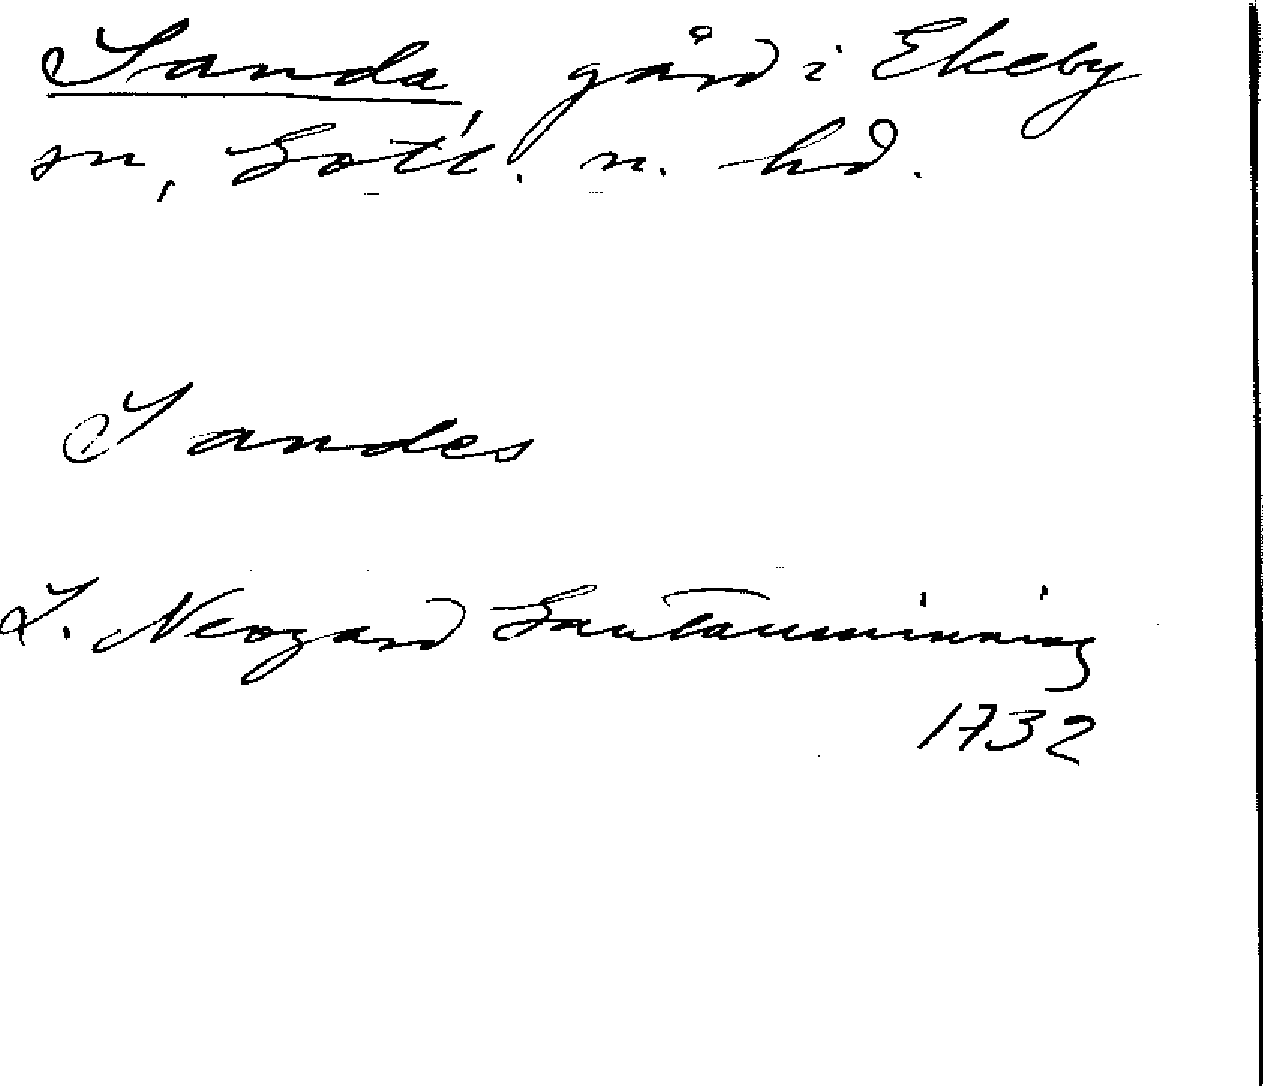 Sanda, gård i Ekeby
sn, Gotl. n. hd.
Sandes
J. Neogard Gautauminning
1732